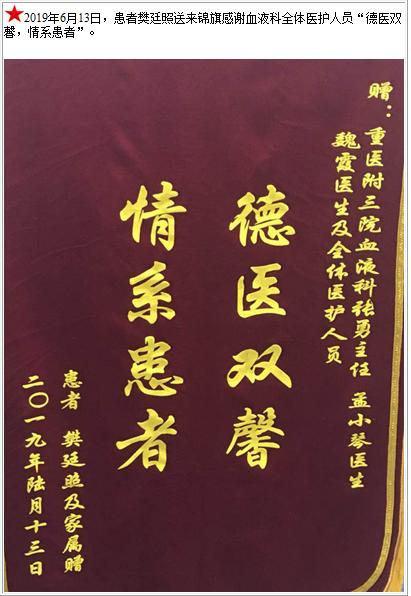 ★2019年6月13日，患者樊廷照送来锦旗感谢血液科全体医护人员“德医双
馨，情系患者”。
赠：
重医附三院血液科张勇主任 孟小琴医生
魏霞医生及全体医护人员
德医双馨
情系患者
患者 樊廷照及家属赠
二〇一九年陆月十三日